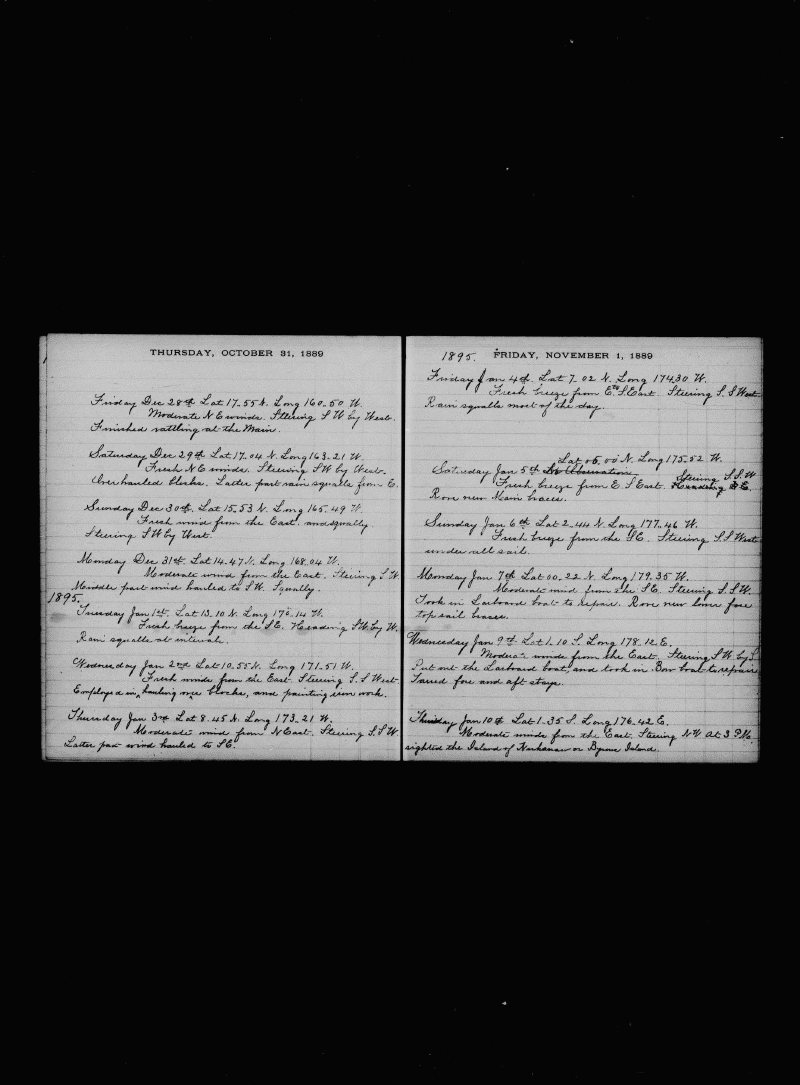 THURSDAY, OCTOBER 31, 1889
Friday Dec 28th Lat 17-55 N. Long 160-50 W.
Moderate N E winds. Steering S W by West.
Finished rattling at the Main.
Saturday Dec 29th Lat 17-04 N. Long 163-21 W.
Fresh N E winds. Steering SW by West.
Overhauled blocks. Latter part rain squalls from E.
Sunday Dec 30th Lat 15-53 N. Long 165-49 W.
Fresh wind from the East and squally.
Steering SW by West.
Monday Dec 31st Lat 14-47 N. Long 168-04 W.
Moderate wind from the East. Steering S W.
Middle part wind hauled to SW. Squally.
1895.
Tuesday Jan 1st Lat 13-10 N. Long 170-14 W.
Fresh breeze from the SE. Heading SW by W.
Rain squalls at intervals.
Wednesday Jan 2nd Lat 10-55 N. Long 171-51 W.
Fresh winds from the East. Steering S. S West.
Employed in, hauling over blocks, and painting iron work.
Thursday Jan 3rd Lat 8-45 N. Long 173-21 W.
Moderate wind from N East. Steering S. S W.
Latter part wind hauled to SE.
1895. FRIDAY, NOVEMBER 1, 1889
Friday Jan 4th. Lat 7-02 N. Long 174 30 W.
Fresh breeze from E to S. East. Steering S. S West.
Rain squalls most of the day.
Lat 05.00 N. Long 175-52 W.
Saturday Jan 5th No Observation Steering S. S. W
Fresh breeze from E. S East. Heading
Rove new Main braces.
Sunday Jan 6th Lat 2-44 N. Long 177-46 W.
Fresh breeze from the SE. Steering S. S West
under all sail.
Monday Jan 7th Lat 00-22 N. Long 179-35 W.
Moderate wind from the SE. Steering S. S W.
Took in Larboard boat to repair. Rove new lower fore
topsail braces.
Wednesday Jan 9th Lat 1-10 S. Long 178-12 E.
Moderate winds from the East. Steering S W. by S.
Put out the Larboard boat, and took in Bow boat to repair
Tarred fore and aft stays.
Thursday Jan 10th Lat 1-35 S. Long 176-42 E.
Moderate winds from the East. Steering NW At 3 P.M.
sighted the Island of or Byron Island.